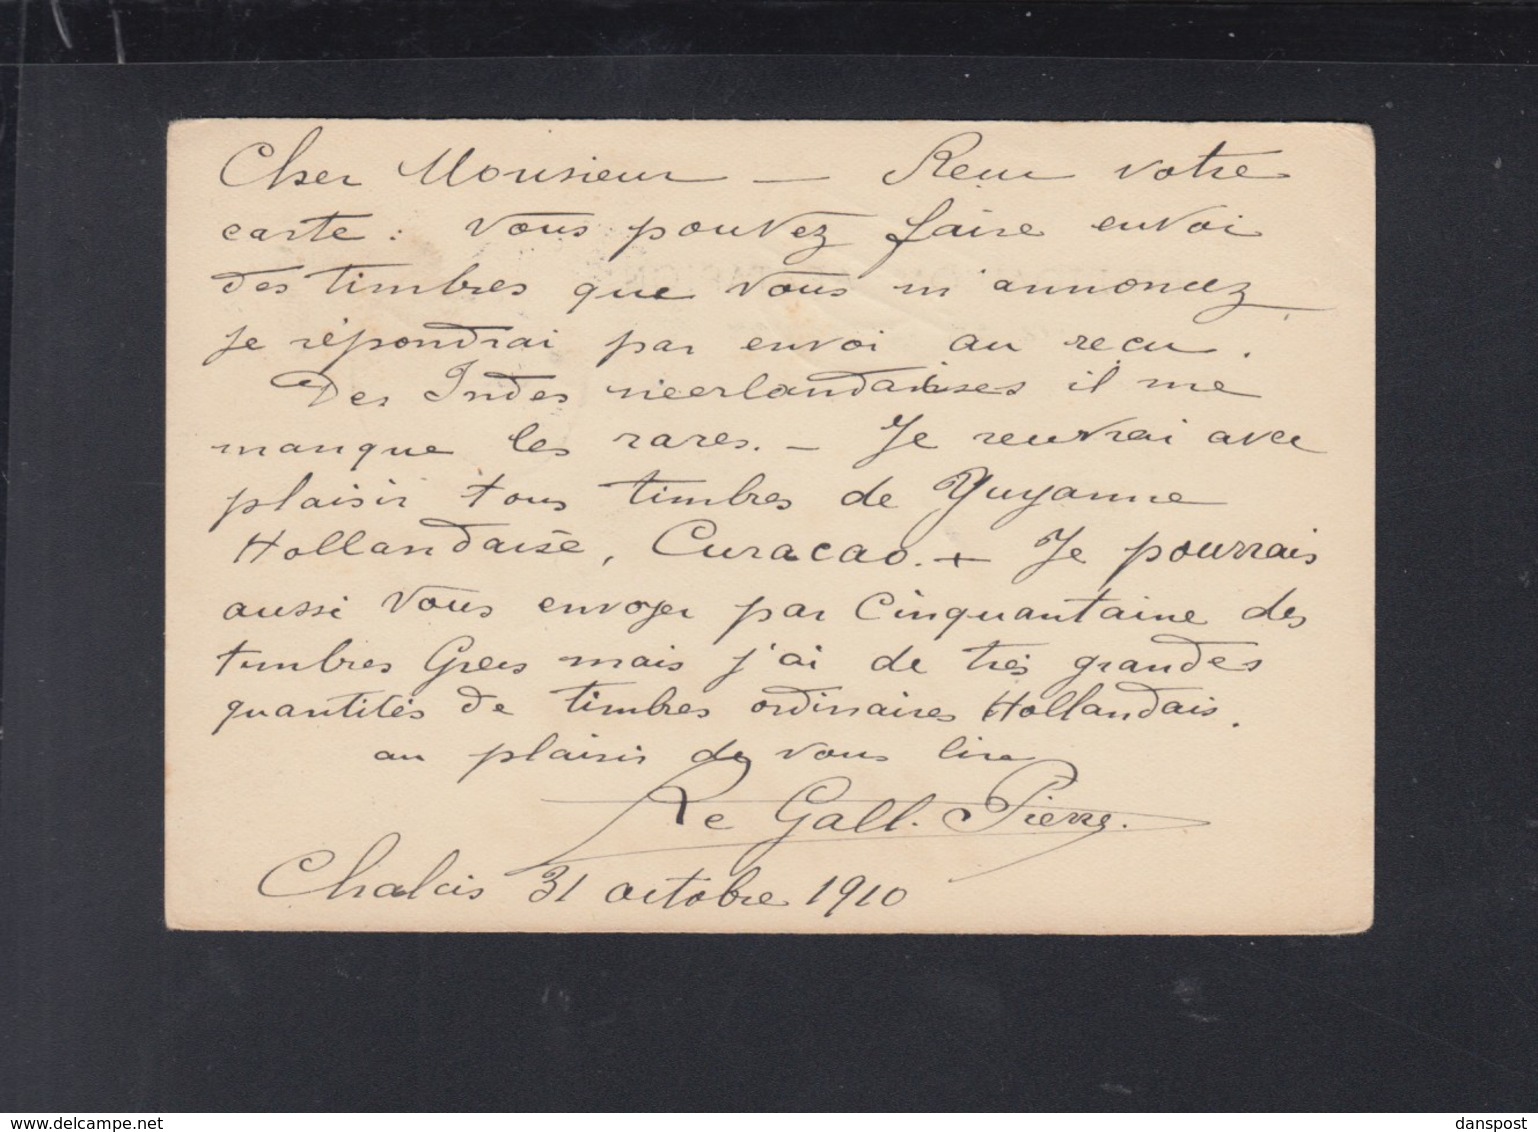 Cher Monsieur — Recu votre
carte : vous pouvez faire envoi
des timbres que vous m'annoncez
je répondrai par envoi au recu.
Des Indes néerlandaises il me
manque les rares. — Je recevrai avec
plaisir tous timbres de Guyanne
Hollandaise, Curacao. + Je pourrais
aussi vous envoyer par cinquantaine des
timbres Grecs mais j'ai de très grandes
quantités de timbres ordinaires Hollandais.
au plaisir de vous lire
Le Gall. Pierre.
Chalcis 31 octobre 1910
danspost